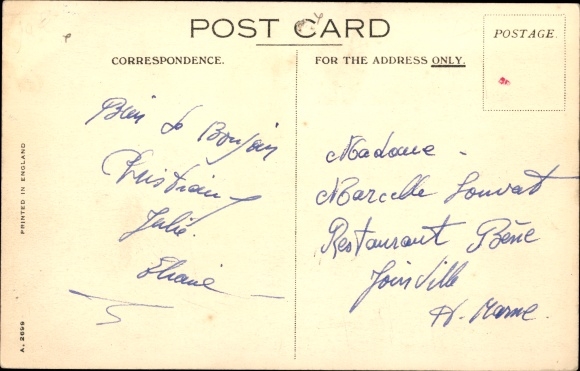 POST CARD
CORRESPONDENCE.
FOR THE ADDRESS ONLY.
POSTAGE.
PRINTED IN ENGLAND
A. 2699
Bien Bonjour
Christian
Julie.
Eliane
Madame -
Marcelle Louvat
Restaurant Bène
Joinville
H. Marne.